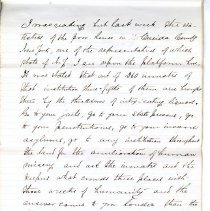 I was reading but last week the sta-
tistics of the poor house in Oneida County
New York, one of the representatives of which
State if I are upon the platform here.
It was stated that out of 260 inmates of
that institution three-fifths of them are brought
there by the thirdness of intoxicating liquors.
Go to your jails, go to your state prisons, go
to your penitentiaries, go to your insane
asylums, go to any institution throughout
the land for the amelioration of human
misery and ask the inmates and its
keepers what crowds these places with
these wrecks of humanity and the
answer comes to you louder than the